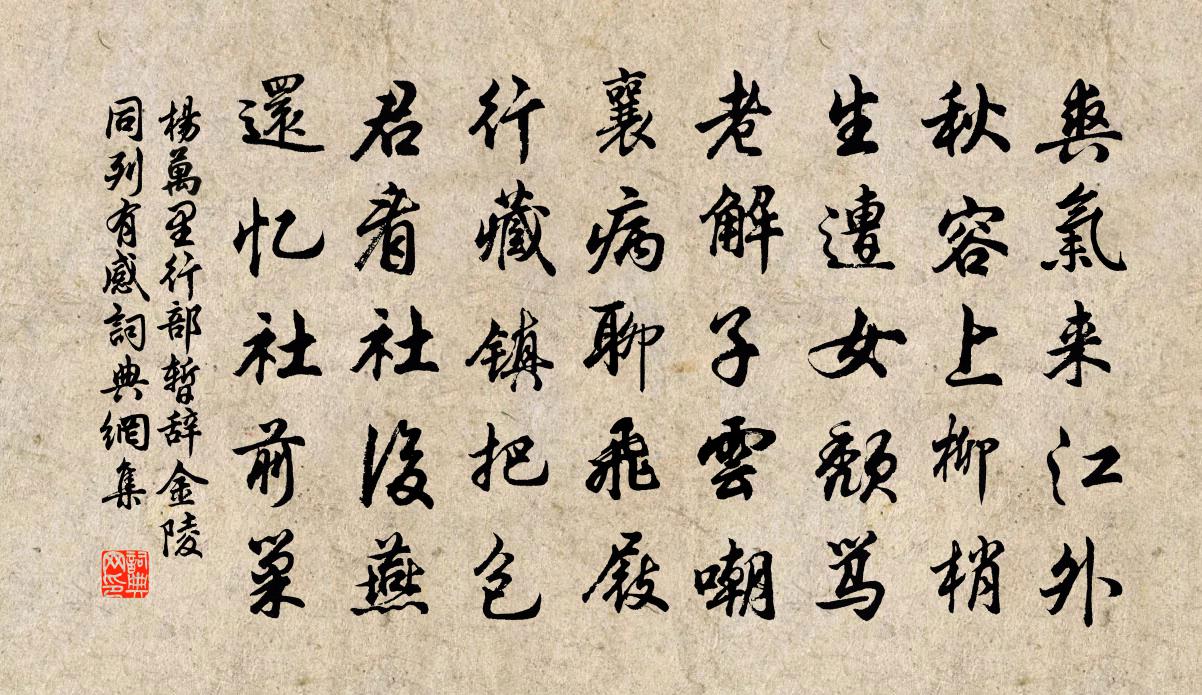 爽氣来江外
秋容上柳梢
生遭女頹骂
老解子雲嘲
襄病聊飛屐
行藏鎮把包
君看社後燕
還忆社前巢
楊萬里行部暫辞金陵
同列有感詞典網集
詞典网印